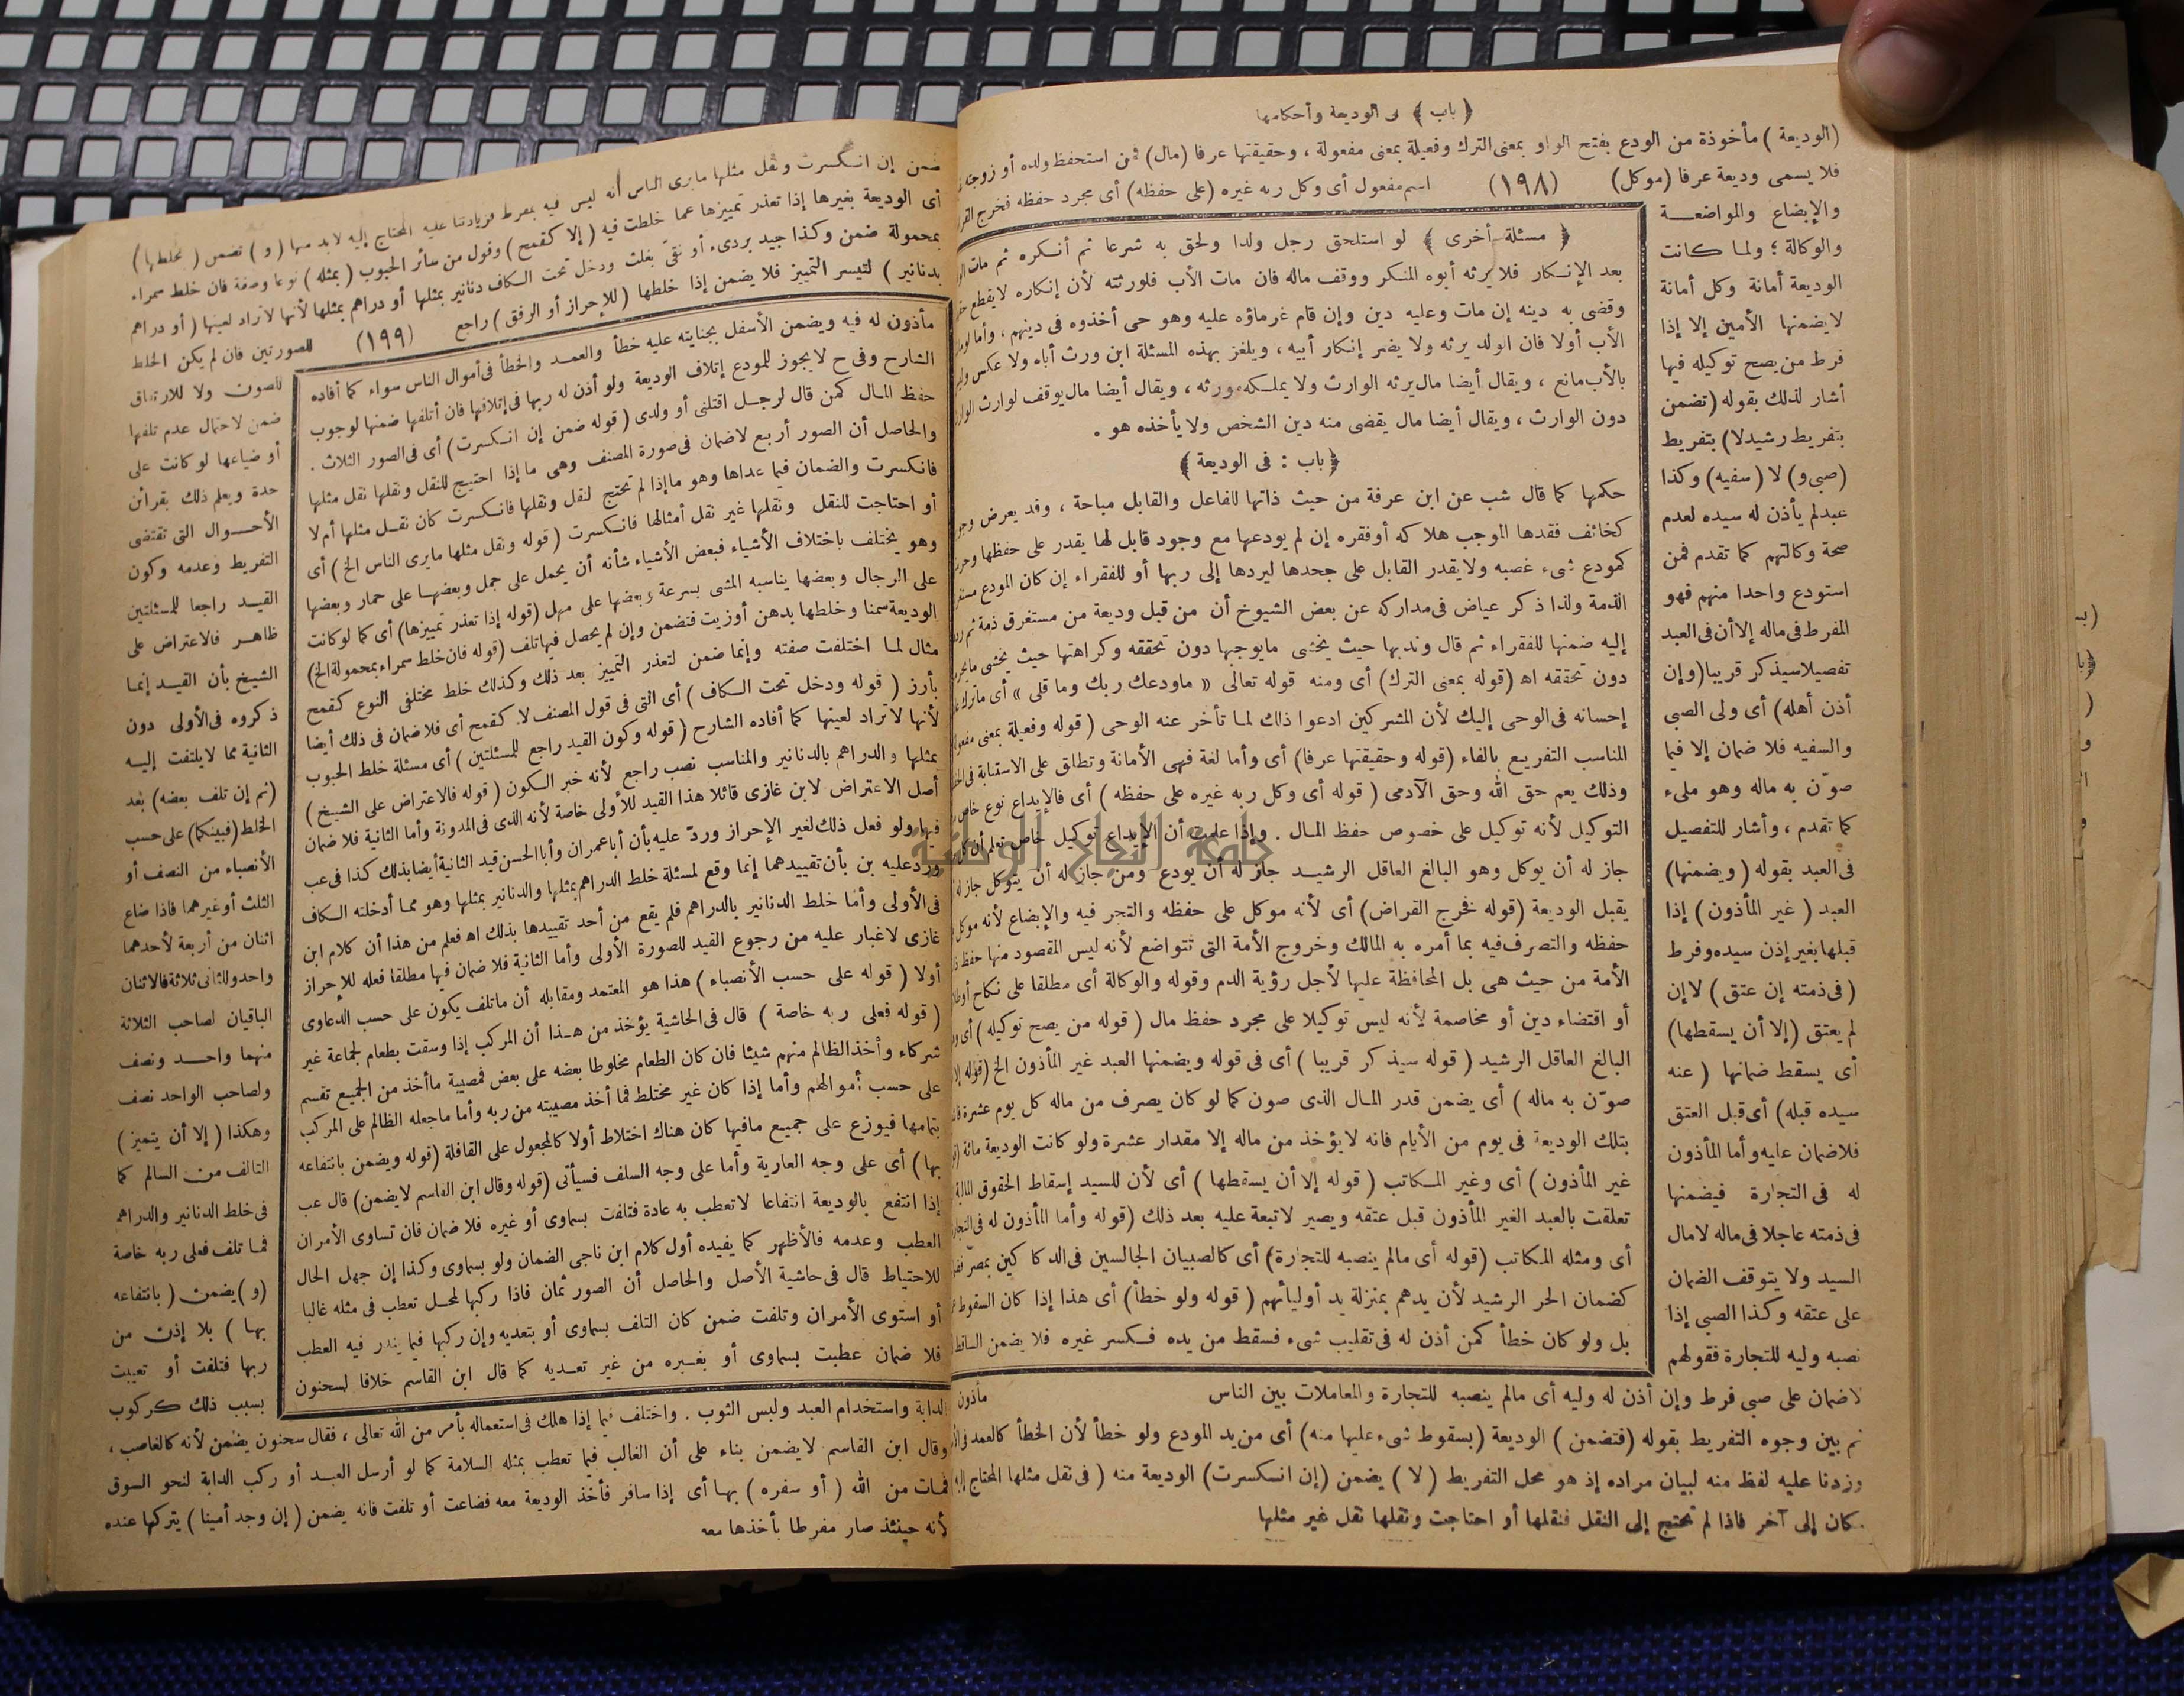 ﴿ باب ﴾ فى الوديعة وأحكامها
(الوديعة) مأخوذة من الودع بفتح الواو بمعنى الترك وفعيلة بمعنى مفعولة ، وحقيقتها عرفا (مال) فمن استحفظ ولده أو زوجته
فلا يسمى وديعة عرفا (موكل)
(١٩٨)
اسم مفعول أى وكل ربه غيره (على حفظه) أى مجرد حفظه فخرج
والإيضاع والمواضعة
والوكالة ؛ ولما كانت
الوديعة أمانة وكل أمانة
لا يضمنها الأمين إلا إذا
فرط من يصح توكيله فيها
أشار لذلك بقوله (تضمن
بتفريط رشيد لا) بتفريط
(صبى و) لا (سفيه) وكذا
عبد لم يأذن له سيده لعدم
صحة وكالتهم كما تقدم فمن
استودع واحدا منهم فهو
المفرط فى ماله إلا أن فى العبد
تفصيلا سيذكر قريبا (وإن
أذن أهله) أى ولى الصبى
والسفيه فلا ضمان إلا فيما
صوّن به ماله وهو ملىء
كما تقدم ، وأشار للتفصيل
فى العبد بقوله (ويضمنها)
العبد (غير المأذون) إذا
قبلها بغير إذن سيده وفرط
(فى ذمته إن عتق) لا إن
لم يعتق (إلا أن يسقطها)
أى يسقط ضمانها (عنه
سيده قبله) أى قبل العتق
فلا ضمان عليه وأما المأذون
له فى التجارة فيضمنها
فى ذمته عاجلا فى ماله لا مال
السيد ولا يتوقف الضمان
على عتقه وكذا الصبى إذا
نصبه وليه للتجارة فقولهم
﴿ مسئلة أخرى ﴾ لو استلحق رجل ولدا ولحق به شرعا ثم أنكره ثم مات
بعد الإنكار فلا يرثه أبوه المنكر ووقف ماله فان مات الأب فلورثته لأن إنكاره لا يقطع
وقضى به دينه إن مات وعليه دين وإن قام غرماؤه عليه وهو حى أخذوه فى دينهم ، وأما
الأب أولا فان الولد يرثه ولا يضر إنكار أبيه ، ويلغز بهذه المسئلة ابن ورث أباه ولا عكس
بالأب مانع ، ويقال أيضا مال يرثه الوارث ولا يملكه مورثه ، ويقال أيضا مال يوقف لوارث
دون الوارث ، ويقال أيضا مال يقضى منه دين الشخص ولا يأخذه هو .
﴿ باب : فى الوديعة ﴾
حكمها كما قال شب عن ابن عرفة من حيث ذاتها للفاعل والقابل مباحة ، وقد يعرض
كخائف فقدها الموجب هلاكه أو فقره إن لم يودعها مع وجود قابل لها يقدر على حفظها
كمودع شىء غصبه ولا يقدر القابل على جحدها ليردها إلى ربها أو للفقراء إن كان المودع
الذمة ولذا ذكر عياض فى مداركه عن بعض الشيوخ أن من قبل وديعة من مستغرق ذمة ثم
إليه ضمنها للفقراء ثم قال وندبها حيث يخشى ما يوجبها دون تحققه وكراهتها حيث يخشى
دون تحققه اه (قوله بمعنى الترك) أى ومنه قوله تعالى « ماودعك ربك وما قلى » أى ما ترك
إحسانه فى الوحى إليك لأن المشركين ادعوا ذلك لما تأخر عنه الوحى (قوله وفعيلة بمعنى
المناسب التفريع بالفاء (قوله وحقيقتها عرفا) أى وأما لغة فهى الأمانة وتطلق على الاستنابة
وذلك يعم حق الله وحق الآدمى (قوله أى وكل ربه غيره على حفظه) أى فالإيداع نوع خاص
التوكيل لأنه توكيل على خصوص حفظ المال . وإذا علمت أن الإيداع توكيل خاص تعلم أن
جامعة النجاح الوطنية
جاز له أن يوكل وهو البالغ العاقل الرشيد جاز له أن يودع ومن جاز له أن يتوكل جاز له
يقبل الوديعة (قوله فخرج القراض) أى لأنه موكل على حفظه والتجر فيه والإبضاع لأنه موكل
حفظه والتصرف فيه بما أمره به المالك وخروج الأمة التى تتواضع لأنه ليس المقصود منها حفظ
الأمة من حيث هى بل المحافظة عليها لأجل رؤية الدم وقوله والوكالة أى مطلقا على نكاح
أو اقتضاء دين أو مخاصمة لأنه ليس توكيلا على مجرد حفظ مال (قوله من يصح توكيله) أى
البالغ العاقل الرشيد (قوله سيذكر قريبا) أى فى قوله ويضمنها العبد غير المأذون الخ (قوله
صوّن به ماله) أى يضمن قدر المال الذى صون كما لو كان يصرف من ماله كل يوم عشرة
بتلك الوديعة فى يوم من الأيام فانه لا يؤخذ من ماله إلا مقدار عشرة ولو كانت الوديعة مائة
غير المأذون) أى وغير المكاتب (قوله إلا أن يسقطها) أى لأن للسيد إسقاط الحقوق المالية
تعلقت بالعبد الغير المأذون قبل عتقه ويصير لا تبعة عليه بعد ذلك (قوله وأما المأذون له فى
أى ومثله المكاتب (قوله أى مالم ينصبه للتجارة) أى كالصبيان الجالسين فى الدكاكين بمصر
كضمان الحر الرشيد لأن يدهم بمنزلة يد أوليائهم (قوله ولو خطأ) أى هذا إذا كان السقوط
بل ولو كان خطأ كمن أذن له فى تقليب شىء فسقط من يده فكسر غيره فلا يضمن الساقط
لا ضمان على صبى فرط وإن أذن له وليه أى مالم ينصبه للتجارة والمعاملات بين الناس
مأذون
ثم بين وجوه التفريط بقوله (فتضمن) الوديعة (بسقوط شىء عليها منه) أى من يد المودع ولو خطأ لأن الخطأ كالعمد
وزدنا عليه لفظ منه لبيان مراده إذ هو محل التفريط (لا) يضمن (إن انكسرت) الوديعة منه (فى نقل مثلها المحتاج إليه
كان إلى آخر فاذا لم تحتج إلى النقل فنقلها أو احتاجت ونقلها نقل غير مثلها
ضمن إن انكسرت ونقل مثلها مايرى الناس أنه ليس فيه بمفرط فزيادتنا عليه المحتاج إليه لا بد منها (و) تضمن (بخلطها)
أى الوديعة بغيرها إذا تعذر تمييزها عما خلطت فيه (إلا كقمح) وفول من سائر الحبوب (بمثله) نوعا وصفة فان خلط سمراء
بمحمولة ضمن وكذا جيد بردىء أو نقىّ بغلث ودخل تحت الكاف دنانير بمثلها أو دراهم بمثلها لأنها لا تراد لعينها (أو دراهم
بدنانير) لتيسر التمييز فلا يضمن إذا خلطها (للإحراز أو الرفق) راجع
(١٩٩)
للصورتين فان لم يكن الخلط
للصون ولا للارتفاق
ضمن لاحتمال عدم تلفها
أو ضياعها لو كانت على
حدة ويعلم ذلك بقرائن
الأحوال التى تقتضى
التفريط وعدمه وكون
القيد راجعا للمسئلتين
ظاهر فالاعتراض على
الشيخ بأن القيد إنما
ذكروه فى الأولى دون
الثانية مما لا يلتفت إليه
(ثم إن تلف بعضه) بعد
الخلط (فبينكما) على حسب
الأنصباء من النصف أو
الثلث أو غيرهما فاذا ضاع
اثنان من أربعة لأحدهما
واحد وللثانى ثلاثة فالاثنان
الباقيان لصاحب الثلاثة
منهما واحد ونصف
ولصاحب الواحد نصف
وهكذا (إلا أن يتميز)
التالف من السالم كما
فى خلط الدنانير والدراهم
فما تلف فعلى ربه خاصة
(و) يضمن (بانتفاعه
بها) بلا إذن من
ربها فتلفت أو تعيبت
بسبب ذلك كركوب
مأذون له فيه ويضمن الأسفل بجنايته عليه خطأ والعمد والخطأ فى أموال الناس سواء كما أفاده
الشارح وفى ح لا يجوز للمودع إتلاف الوديعة ولو أذن له ربها فى إتلافها فان أتلفها ضمنها لوجوب
حفظ المال كمن قال لرجل اقتلنى أو ولدى (قوله ضمن إن انكسرت) أى فى الصور الثلاث .
والحاصل أن الصور أربع لا ضمان فى صورة المصنف وهى ما إذا احتيج للنقل ونقلها نقل مثلها
فانكسرت والضمان فيما عداها وهو ما إذا لم تحتج لنقل ونقلها فانكسرت كان نقل مثلها أم لا
أو احتاجت للنقل ونقلها غير نقل أمثالها فانكسرت (قوله ونقل مثلها مايرى الناس الخ) أى
وهو يختلف باختلاف الأشياء فبعض الأشياء شأنه أن يحمل على جمل وبعضها على حمار وبعضها
على الرجال وبعضها يناسبه المشى بسرعة وبعضها على مهل (قوله إذا تعذر تمييزها) أى كما لو كانت
الوديعة سمنا وخلطها بدهن أو زيت فتضمن وإن لم يحصل فيها تلف (قوله فان خلط سمراء بمحمولة الخ)
مثال لما اختلفت صفته وإنما ضمن لتعذر التمييز بعد ذلك وكذلك خلط مختلفى النوع كقمح
بأرز (قوله ودخل تحت الكاف) أى التى فى قول المصنف لا كقمح أى فلا ضمان فى ذلك أيضا
لأنها لا تراد لعينها كما أفاده الشارح (قوله وكون القيد راجع للمسئلتين) أى مسئلة خلط الحبوب
بمثلها والدراهم بالدنانير والمناسب نصب راجع لأنه خبر الكون (قوله فالاعتراض على الشيخ)
أصل الاعتراض لابن غازى قائلا هذا القيد للأولى خاصة لأنه الذى فى المدونة وأما الثانية فلا ضمان
فيها ولو فعل ذلك لغير الإحراز وردّ عليه بأن أبا عمران وأبا الحسن قيد الثانية أيضا بذلك كذا فى عب
ورد عليه بن بأن تقييدهما إنما وقع لمسئلة خلط الدراهم بمثلها والدنانير بمثلها وهو مما أدخلته الكاف
فى الأولى وأما خلط الدنانير بالدراهم فلم يقع من أحد تقييدها بذلك اه فعلم من هذا أن كلام ابن
غازى لا غبار عليه من رجوع القيد للصورة الأولى وأما الثانية فلا ضمان فيها مطلقا فعله للإحراز
أولا (قوله على حسب الأنصباء) هذا هو المعتمد ومقابله أن ماتلف يكون على حسب الدعاوى
(قوله فعلى ربه خاصة) قال فى الحاشية يؤخذ من هذا أن المركب إذا وسقت بطعام لجماعة غير
شركاء وأخذ الظالم منهم شيئا فان كان الطعام مخلوطا بعضه على بعض فمصيبة ما أخذ من الجميع تقسم
على حسب أموالهم وأما إذا كان غير مختلط فما أخذ مصيبته من ربه وأما ماجعله الظالم على المركب
بتمامها فيوزع على جميع مافيها كان هناك اختلاط أولا كالمجعول على القافلة (قوله ويضمن بانتفاعه
بها) أى على وجه العارية وأما على وجه السلف فسيأتى (قوله وقال ابن القاسم لا يضمن) قال عب
إذا انتفع بالوديعة انتفاعا لا تعطب به عادة فتلفت بسماوى أو غيره فلا ضمان فان تساوى الأمران
العطب وعدمه فالأظهر كما يفيده أول كلام ابن ناجى الضمان ولو بسماوى وكذا إن جهل الحال
للاحتياط قال فى حاشية الأصل والحاصل أن الصور ثمان فاذا ركبها لمحل تعطب فى مثله غالبا
أو استوى الأمران وتلفت ضمن كان التلف بسماوى أو بتعديه وإن ركبها فيما يندر فيه العطب
فلا ضمان عطبت بسماوى أو بغيره من غير تعديه كما قال ابن القاسم خلافا لسحنون
الدابة واستخدام العبد ولبس الثوب . واختلف فيما إذا هلك فى استعماله بأمر من الله تعالى ، فقال سحنون يضمن لأنه كالغاصب ،
وقال ابن القاسم لا يضمن بناء على أن الغالب فيما تعطب بمثله السلامة كما لو أرسل العبد أو ركب الدابة لنحو السوق
فمات من الله (أو سفره) بها أى إذا سافر فأخذ الوديعة معه فضاعت أو تلفت فانه يضمن (إن وجد أمينا) يتركها عنده
لأنه حينئذ صار مفرطا بأخذها معه